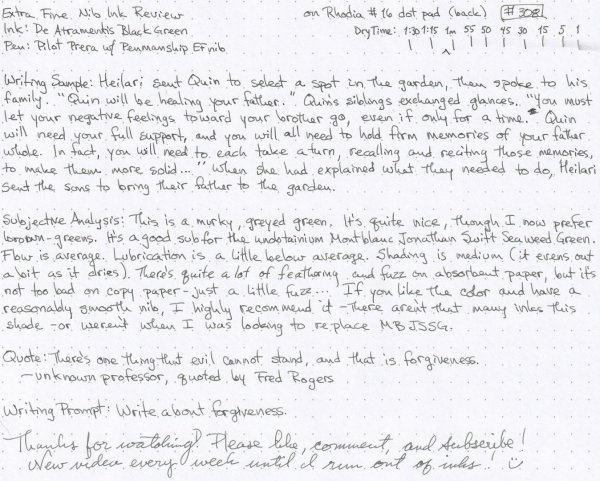 Extra Fine Nib Ink Review on Rhodia #16 dot pad (back) #308
Ink: De Atramentis Black Green Dry Time: 1:30 1:15 1m 55 50 45 30 15 5 1
Pen: Pilot Prera w/ Penmanship EF nib
Writing Sample: Heilari sent Quin to select a spot in the garden, then spoke to his
family. "Quin will be healing your father." Quin's siblings exchanged glances. "You must
let your negative feelings toward your brother go, even if only for a time. Quin
will need your full support, and you will all need to hold firm memories of your father
whole. In fact, you will need to each take a turn, recalling and reciting those memories,
to make them more solid..." When she had explained what they needed to do, Heilari
sent the sons to bring their father to the garden.
Subjective Analysis: This is a murky, greyed green. It's quite nice, though I now prefer
brown-greens. It's a good sub for the unobtainium Montblanc Jonathan Swift Seaweed Green.
Flow is average. Lubrication is a little below average. Shading is medium (it evens out
a bit as it dries). There's quite a lot of feathering and fuzz on absorbent paper, but it's
not too bad on copy paper - just a little fuzz... If you like the color and have a
reasonably smooth nib, I highly recommend it - there aren't that many inks this
shade - or weren't when I was looking to replace MB JSSG.
Quote: There's one thing that evil cannot stand, and that is forgiveness.
- unknown professor, quoted by Fred Rogers
Writing Prompt: Write about forgiveness.
Thanks for watching! Please like, comment, and subscribe!
New video every week until I run out of inks! :)